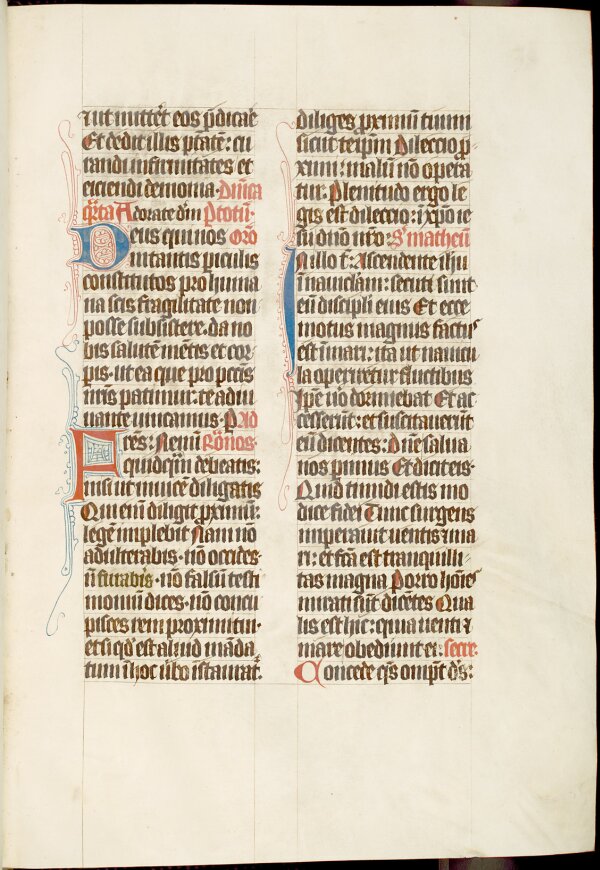 ⁊ ut mitteret eos p̄dicare
Et dedit illis ptātē: cu
randi infirmitates et
eiciendi demonia. Dn̄ica
qrta Adorate dm̄ p totū.
Deus qui nos Orō
in tantis ꝑiculis
constitutos pro huma
na scis fragilitate non
posse subsistere. da no
bis salutē mētis et cor
pis. ut ea que pro pccīs
nr̄is patimur: te adiu
uante uincamus. P Ad
Fres: Nemi Rōnos.
quidqm̄ debeatis:
nisi ut inuicē diligatis
Qui eni diligit ꝓximū:
legē impleuit Nam nō
adulterabis. nō occides.
n̄ furabis. nō falsū testi
moniū dices. nō concu
pisces rem proximi tui.
et si qd est aliud māda
tum: ī hoc ūbo īstaurat.
diliges ꝓximū tuum
sicut teipm̄ Dileccio ꝓ
ximi: malū nō opera
tur. Plenitudo ergo le
gis est dileccio: ī xpō ie
su dnō nr̄o. S matheū
In illo t̄. Ascendente ihu
ī nauiclam: secuti sunt
eū discipli eius Et ecce
motus magnus factus
est ī mari: ita ut nauicu
la operiretur fluctibus
Ipe nō dormiebat Et ac
cesserūt: et suscitauerūt
eū dicentes. Dn̄e salua
nos perimus Et dicit eis.
Quid timidi estis mo
dice fidei Tunc surgens
imperauit uentis ⁊ ma
ri: et fcā est tranquilli
tas magna Porro hoīes
mirati sūt dicētes Qua
lis est hic: quia uenti ⁊
mare obediunt ei. secre.
Concede qs omp̄t ds: